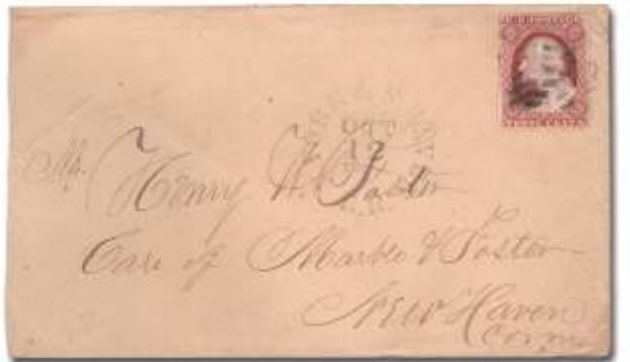 THREE CENTS
OCT
12
Mr. Henry W. Foster
Care of Marble & Foster
New Haven
Conn